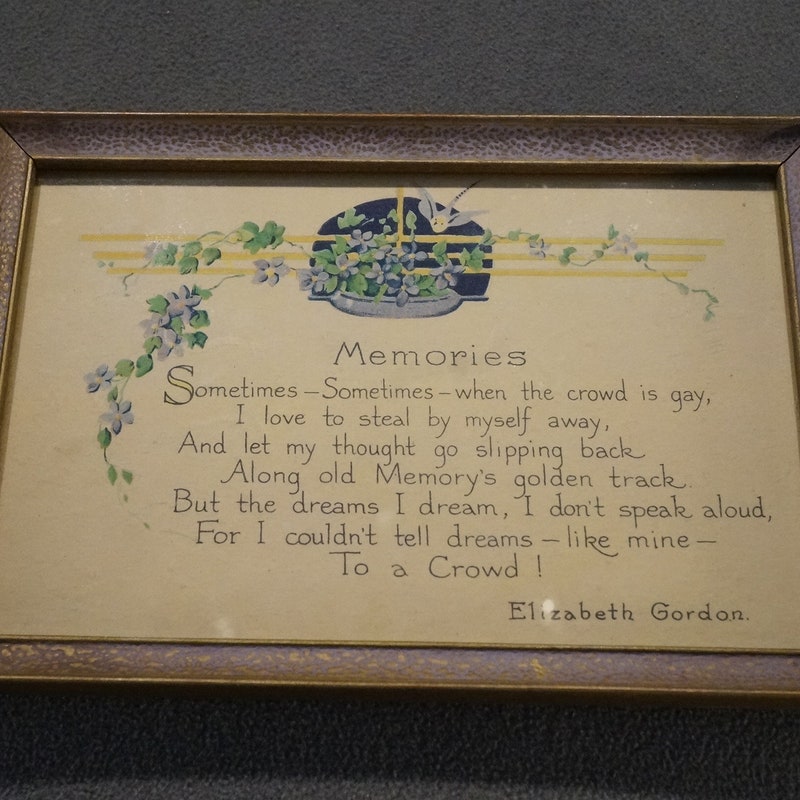 Memories
Sometimes – Sometimes – when the crowd is gay,
I love to steal by myself away,
And let my thought go slipping back
Along old Memory's golden track.
But the dreams I dream, I don't speak aloud,
For I couldn't tell dreams – like mine –
To a Crowd !
Elizabeth Gordon.